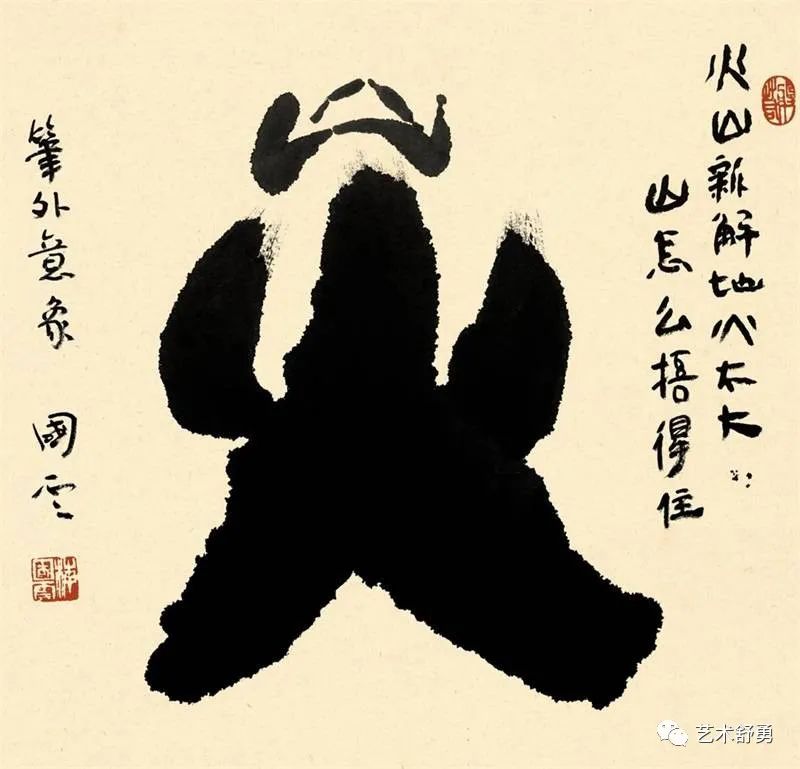 山
火
火山新解地火太大
山怎么捂得住
筆外意象 國雲
艺术舒勇